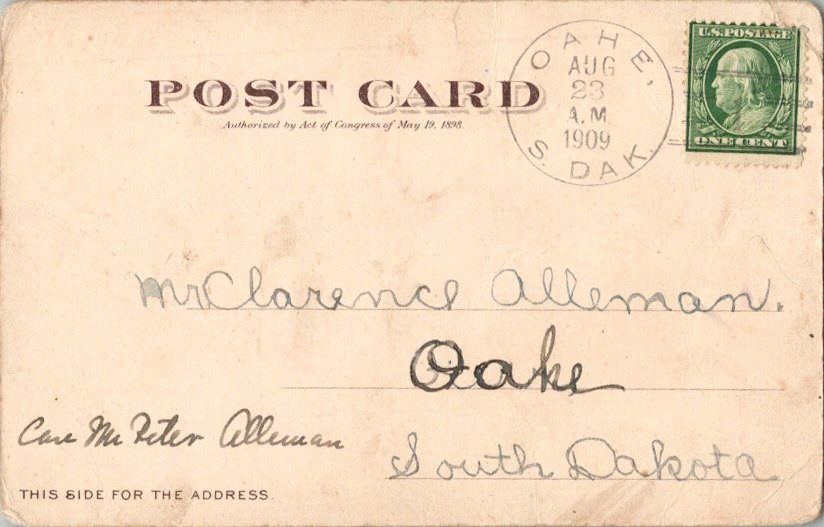 POST CARD
Authorized by Act of Congress of May 19, 1898.
OAHE,
AUG
23
A.M.
1909
S. DAK.
U.S. POSTAGE
ONE CENT
Mr Clarence Alleman.
Oahe
Care Mr Peter Alleman
South Dakota
THIS SIDE FOR THE ADDRESS.